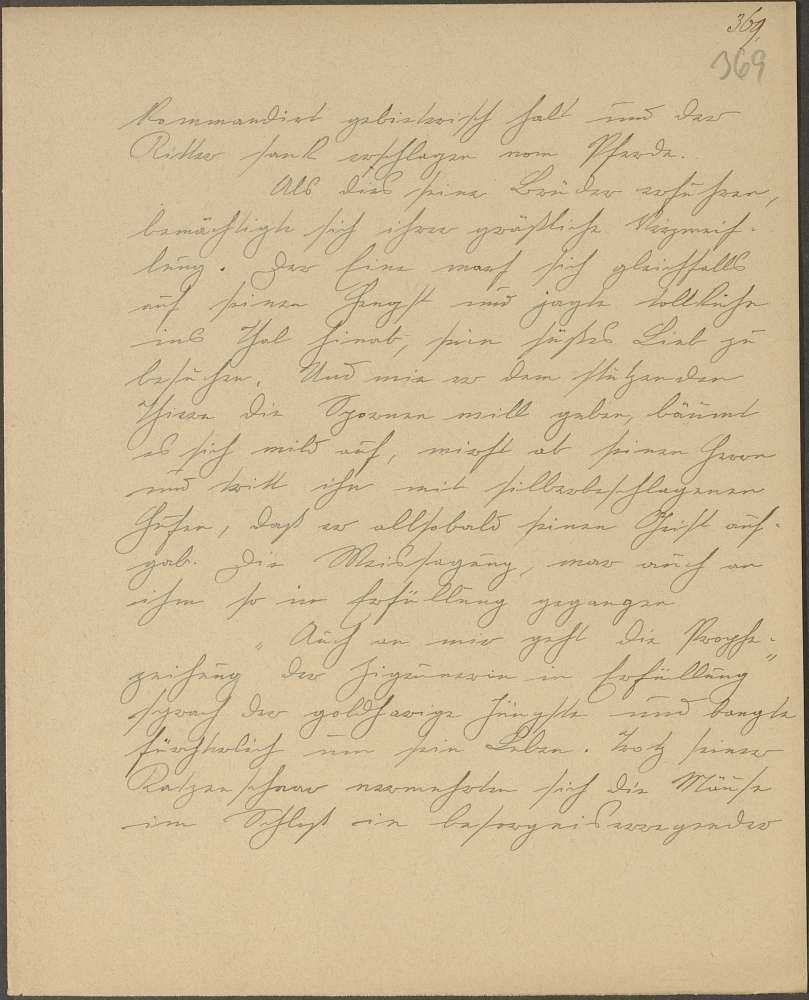 369.
369
Kommandirt gebieterisch halt und der
Ritter sank erschlagen vom Pferde.
Als dies seine Brüder erfuhren,
bemächtigte sich ihrer gräßliche Verzweif-
lung. Der Eine warf sich gleichfalls
auf seinen Hengst und jagte tollkühn
ins Thal hinab, sein süßes Lieb zu
besuchen. Und wie er dem stutzenden
Thiere die Spornen will geben, bäumt
es sich wild auf, wirft ab seinen Herrn
und tritt ihn mit silberbeschlagenen
Hufen, daß er allsobald seinen Geist auf-
gab. Die Weissagung, war auch an
ihm so in Erfüllung gegangen
"Auch an mir geht die Prophe-
zeihung der Zigeunerin in Erfüllung"
sprach der goldharige Jüngste und bangte
fürchterlich um sein Leben. Trotz seiner
Katzenschaar vermehrten sich die Mäuse
im Schloß in besorgniserregender